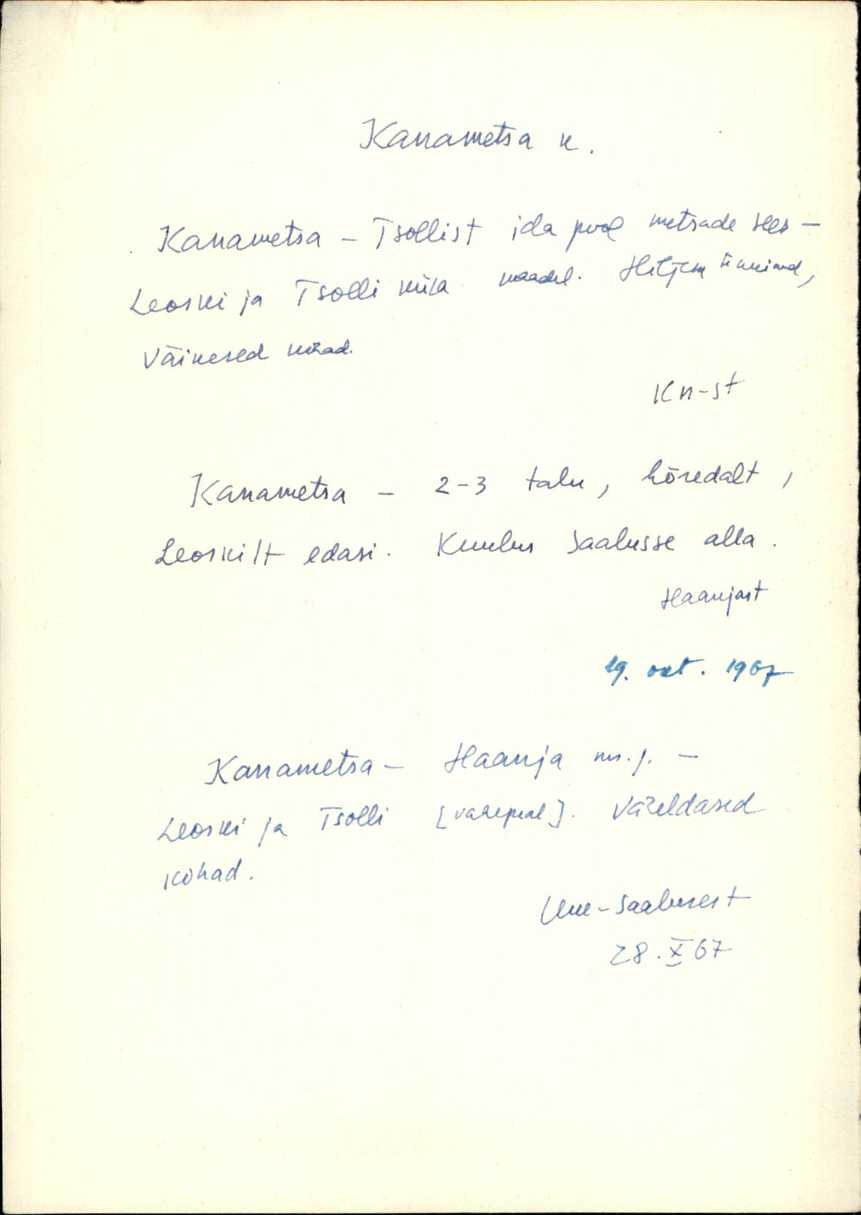 Kanametsa k.
Kanametsa – Tsollist ida pool metsade sees –
Leoski ja Tsolli küla
Väikesed
Kn-st
Kanametsa – 2-3 talu, hõredalt,
Leoskilt edasi. Kuulus Saalusse alla.
Haanjast
19. okt. 1967
Kanametsa – Haanja –
Leoski ja Tsolli [vahepeal].
kohad.
Uue-Saalusest
28. X 67